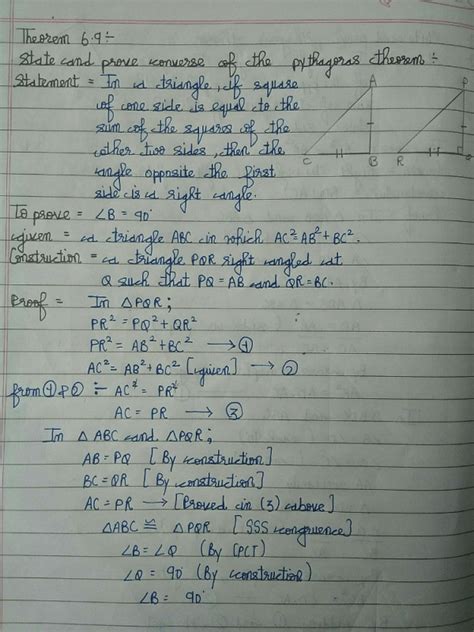 Theorem 6.9 :-
State and prove converse of the pythagoras theorem :-
Statement = In a triangle, if square
of one side is equal to the
sum of the squares of the
other two sides, then the
angle opposite the first
side is a right angle.
A
C
B
P
R
Q
To prove = ∠B = 90°
given = a triangle ABC in which AC² = AB² + BC².
Construction = a triangle PQR right angled at
Q such that PQ = AB and QR = BC.
Proof = In △PQR ;
PR² = PQ² + QR²
PR² = AB² + BC² → ①
AC² = AB² + BC² [given] → ②
from ① & ② :- AC² = PR²
AC = PR → ③
In △ABC and △PQR ;
AB = PQ [By construction]
BC = QR [By construction]
AC = PR → [Proved in (3) above]
△ABC ≅ △PQR [SSS congruence]
∠B = ∠Q (By CPCT)
∠Q = 90° (By construction)
∠B = 90°